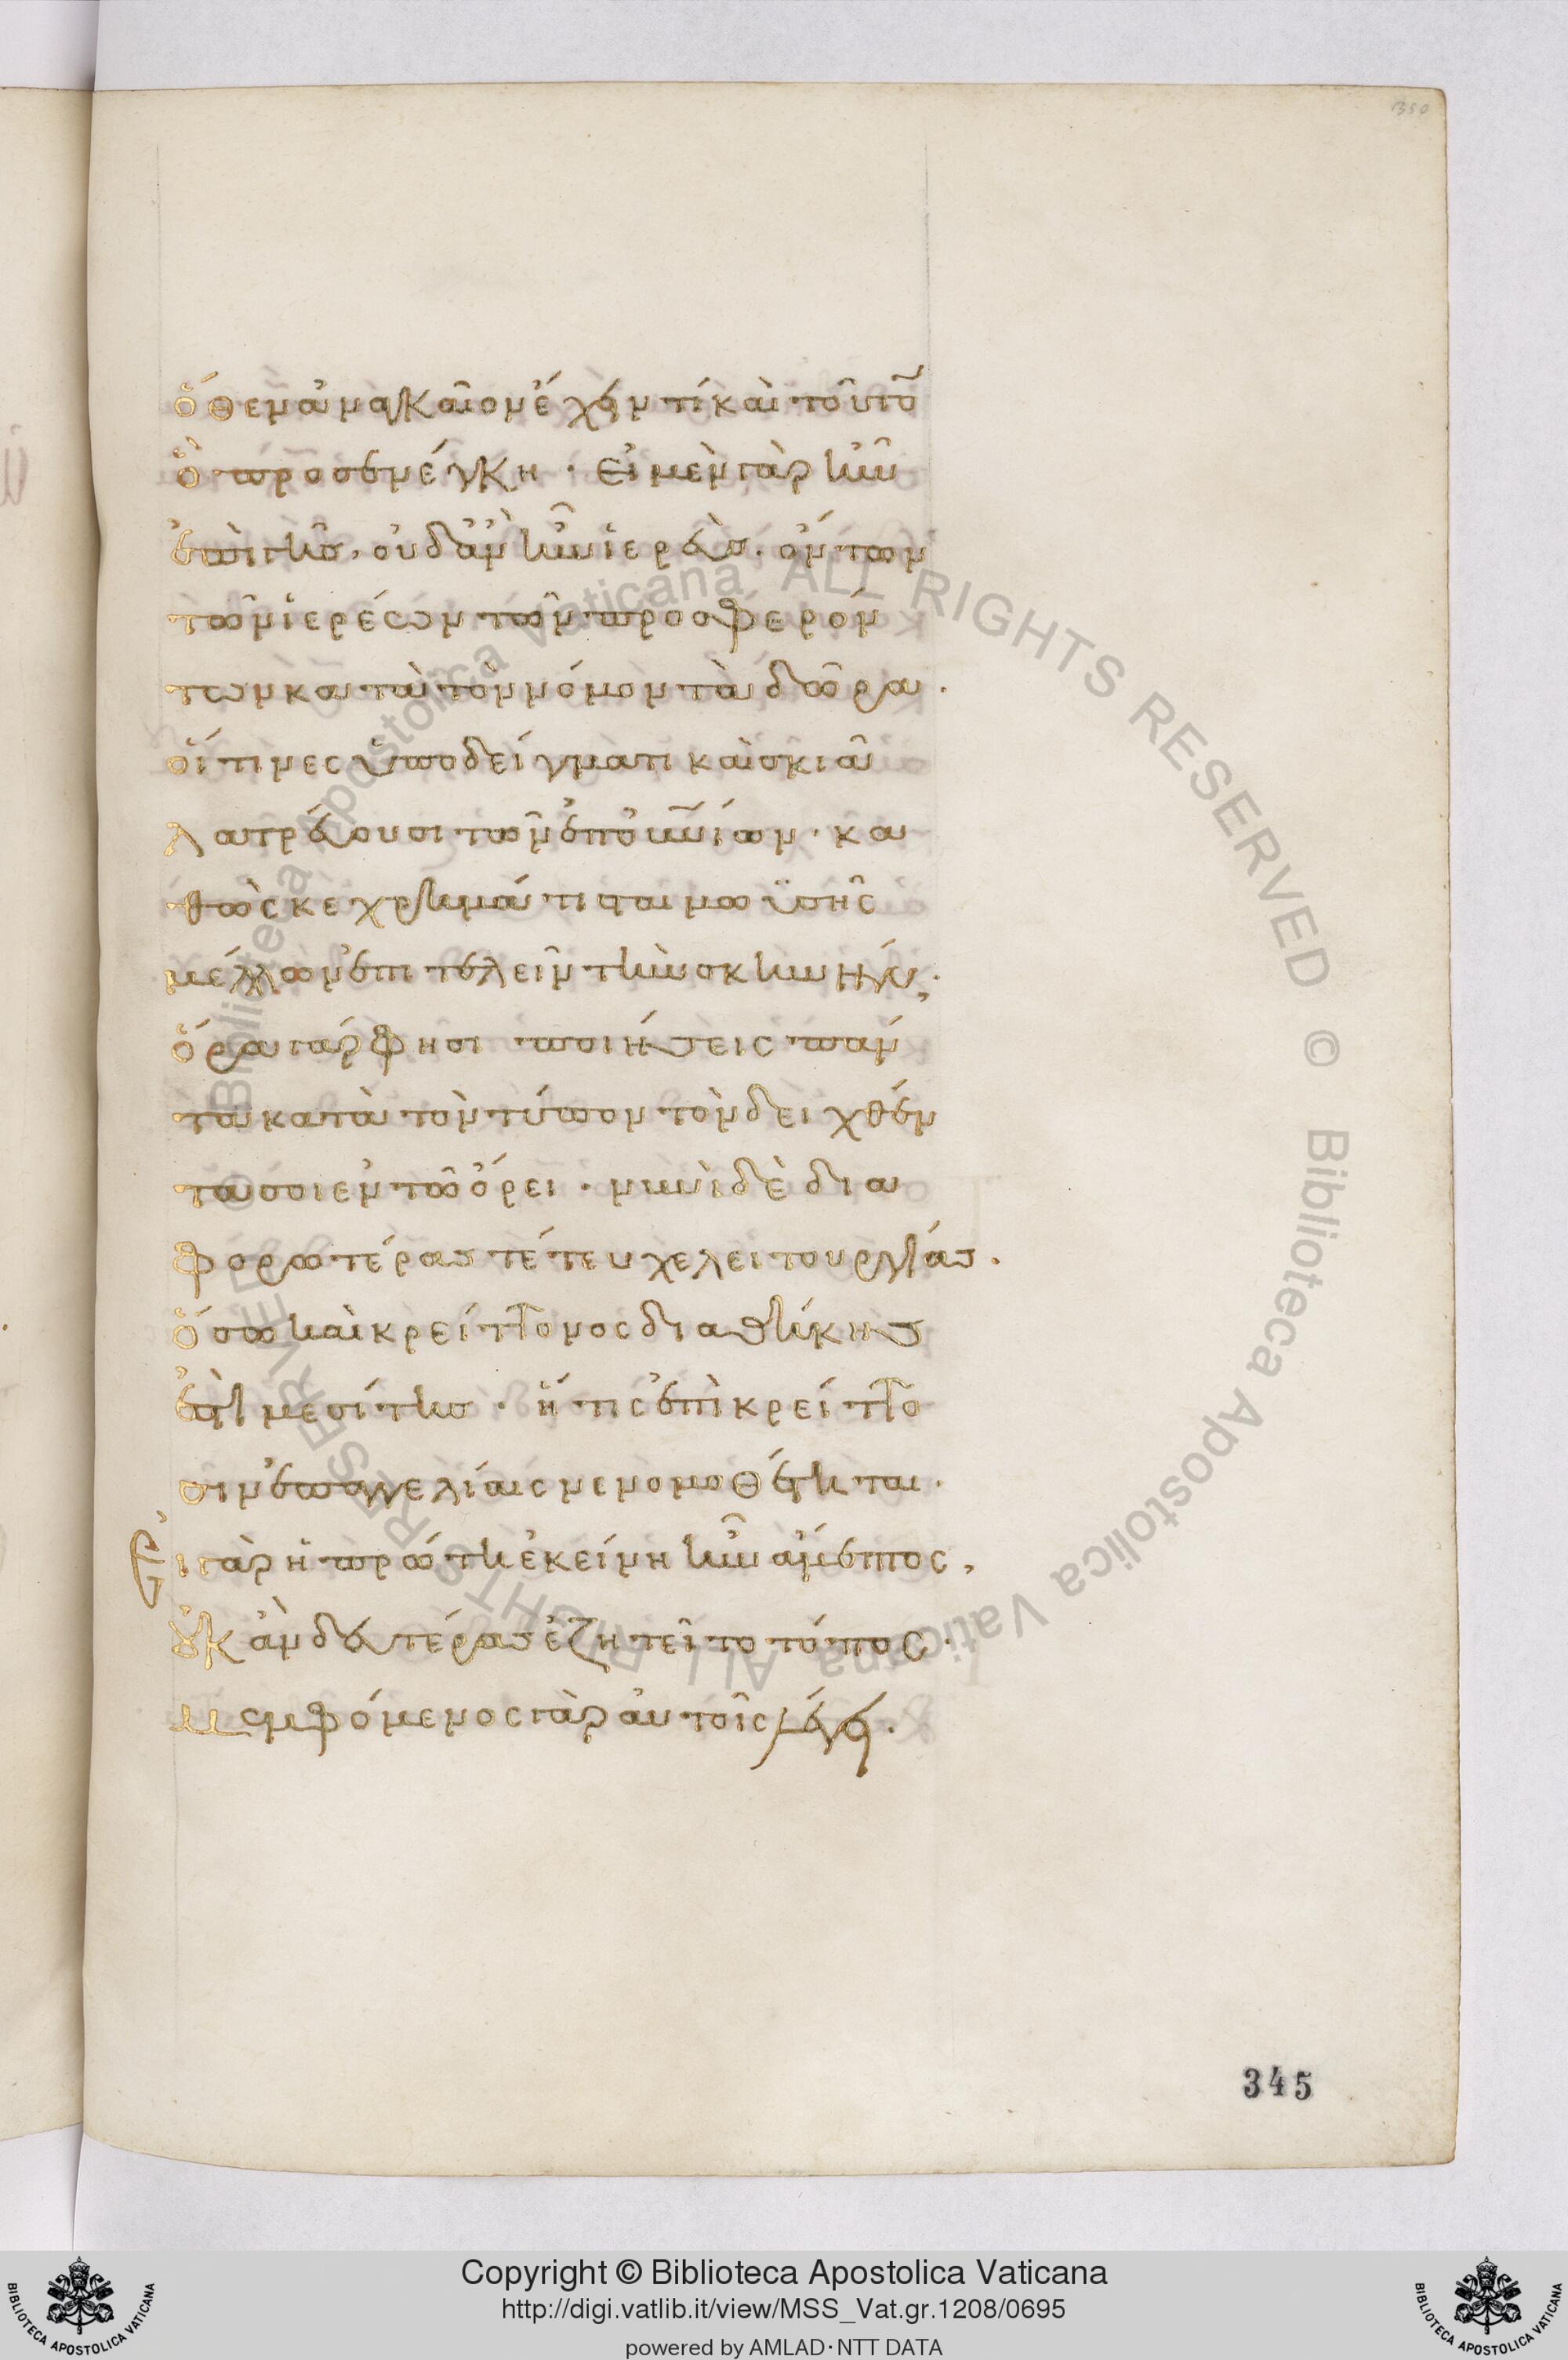 350
ὅθεν ἀναγκαῖον ἔχειν τί καὶ τοῦτο
ὃ προσενέγκη · Εἰ μὲν γὰρ ἦν
ἐπὶ γῆς, οὐδ' ἂν ἦν ἱερεύς. ὄντων
τῶν ἱερέων τῶν προσφερόν
των κατὰ τὸν νόμον τὰ δῶρα .
οἵτινες ὑποδείγματι καὶ σκιᾶ
λατρεύουσι τῶν ἐπουνίων · κα
θὼς κεχρημάτισται μωϋσῆς
μέλλων ἐπιτελεῖν τὴν σκηνήν ·
ὅρα γάρ φησι ποιήσεις πάν
τα κατὰ τὸν τύπον τὸν δειχθέν
τα σοι ἐν τῶ ὄρει · νυνὶ δὲ δια
φορωτέρας τέτευχε λειτουργίας .
ὅσω καὶ κρείττονος διαθήκης
ἐστὶ μεσίτης · ἥτις ἐπὶ κρείττο
σιν ἐπαγγελίαις νενομοθέτηται .
Εἰ γὰρ ἡ πρώτη ἐκείνη ἦν ἄμεμπτος ,
οὐκ ἂν δευτέρας ἐζητεῖτο τόπος .
μεμφόμενος γὰρ αὐτοῖς λέγει .
345
Biblioteca Apostolica Vaticana, ALL RIGHTS RESERVED ©
Copyright © Biblioteca Apostolica Vaticana
http://digi.vatlib.it/view/MSS_Vat.gr.1208/0695
powered by AMLAD·NTT DATA
BIBLIOTECA APOSTOLICA VATICANA
BIBLIOTECA APOSTOLICA VATICANA